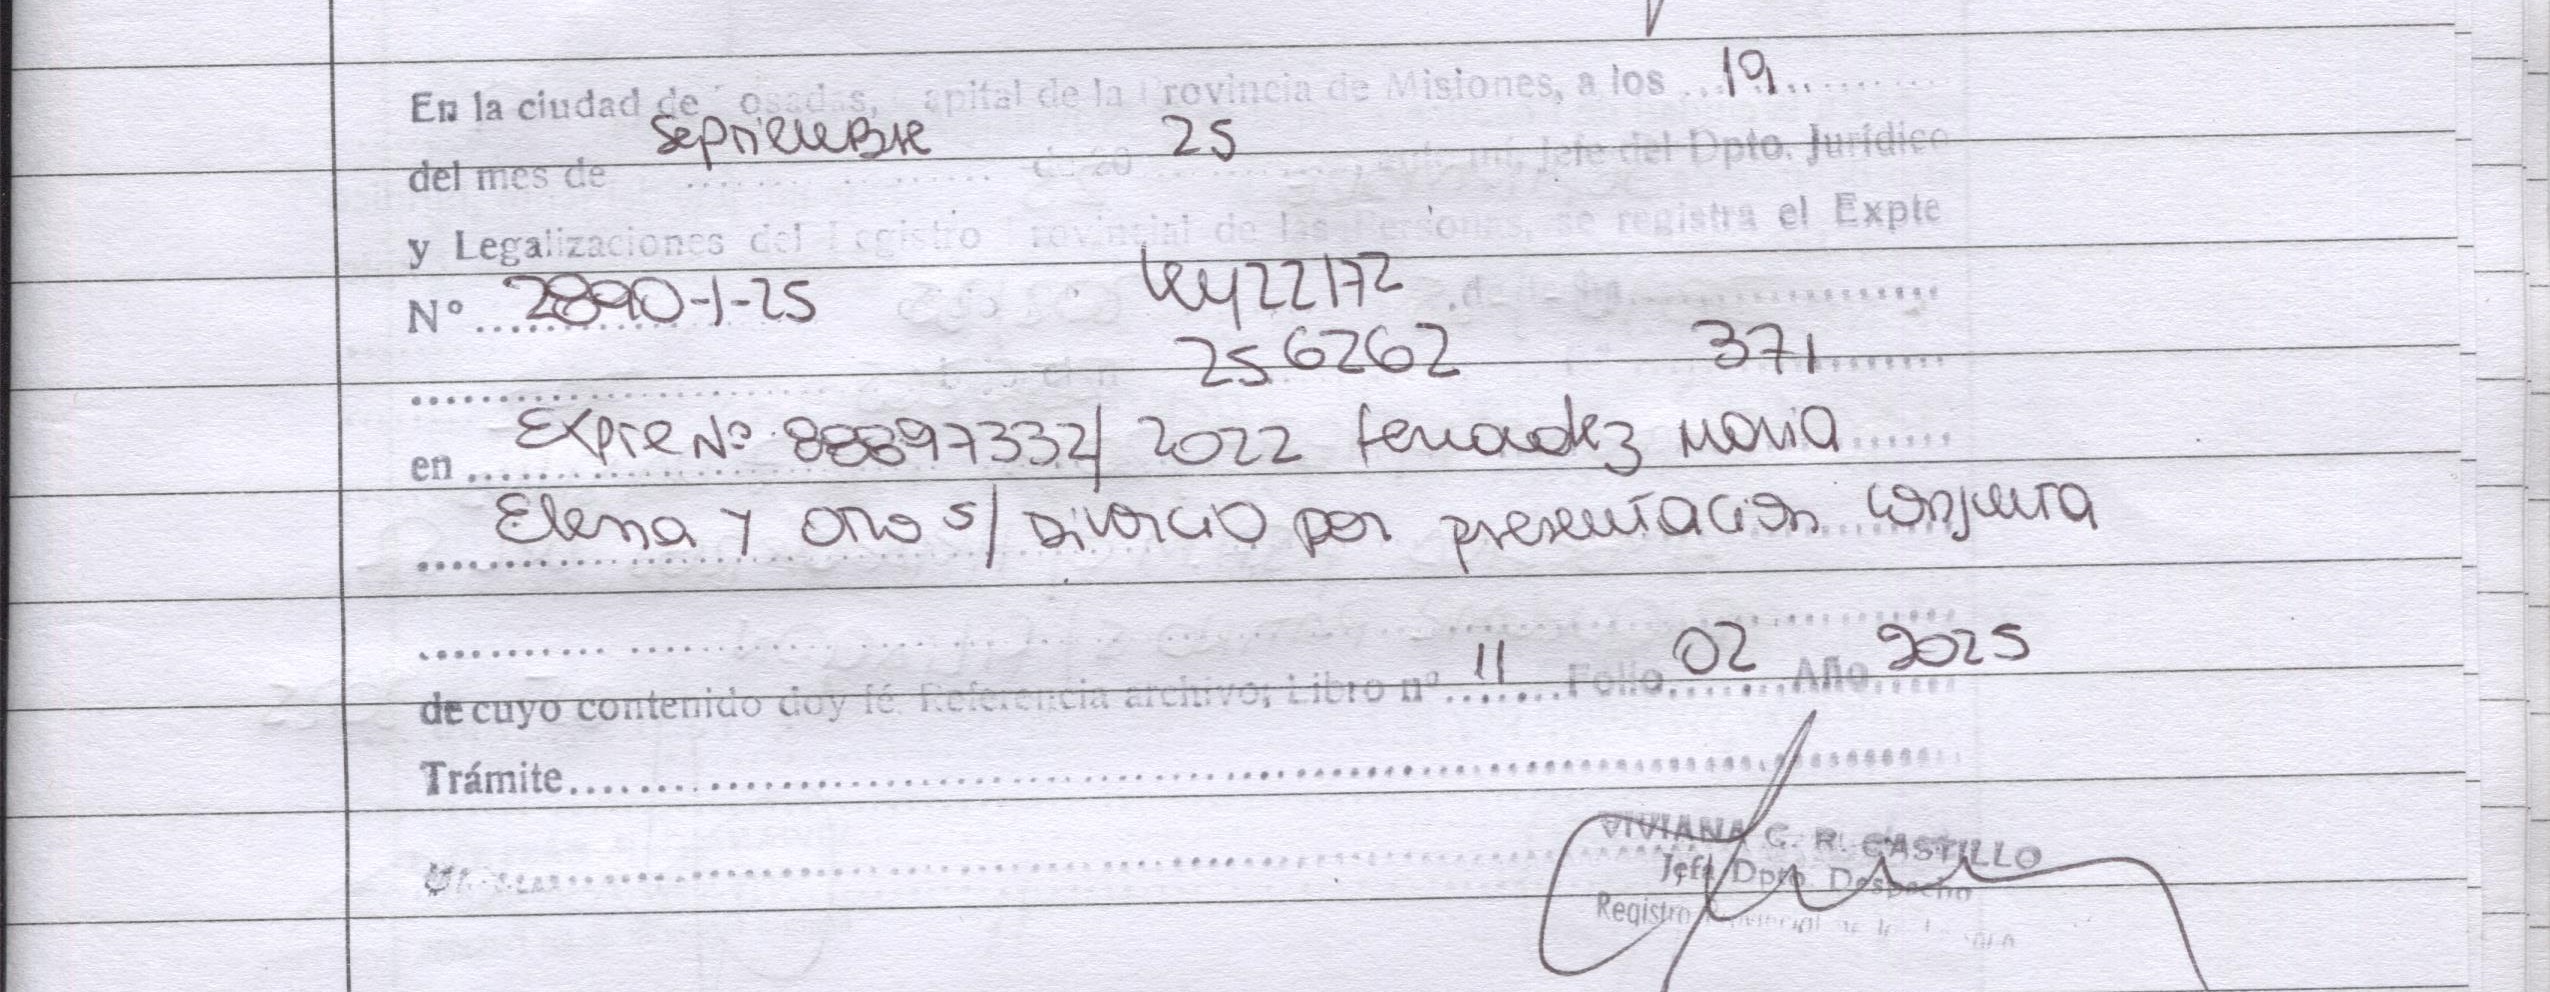 En la ciudad de Posadas, Capital de la Provincia de Misiones, a los 19
del mes de Septiembre de 20 25, ante mi, Jefe del Dpto. Jurídico
y Legalizaciones del Registro Provincial de las Personas, se registra el Expte
Nº 2890-J-25 Ley 22172
256262 371
en Expte Nº 88897332/2022 Fernandez Maria
Elena y otro s/ Divorcio por presentacion conjunta
de cuyo contenido doy fé. Referencia archivo; Libro nº 11 Folio 02 Año 2025
Trámite
VIVIANA C. R. CASTILLO
Jefa Dpto. Despacho
Registro Provincial de las